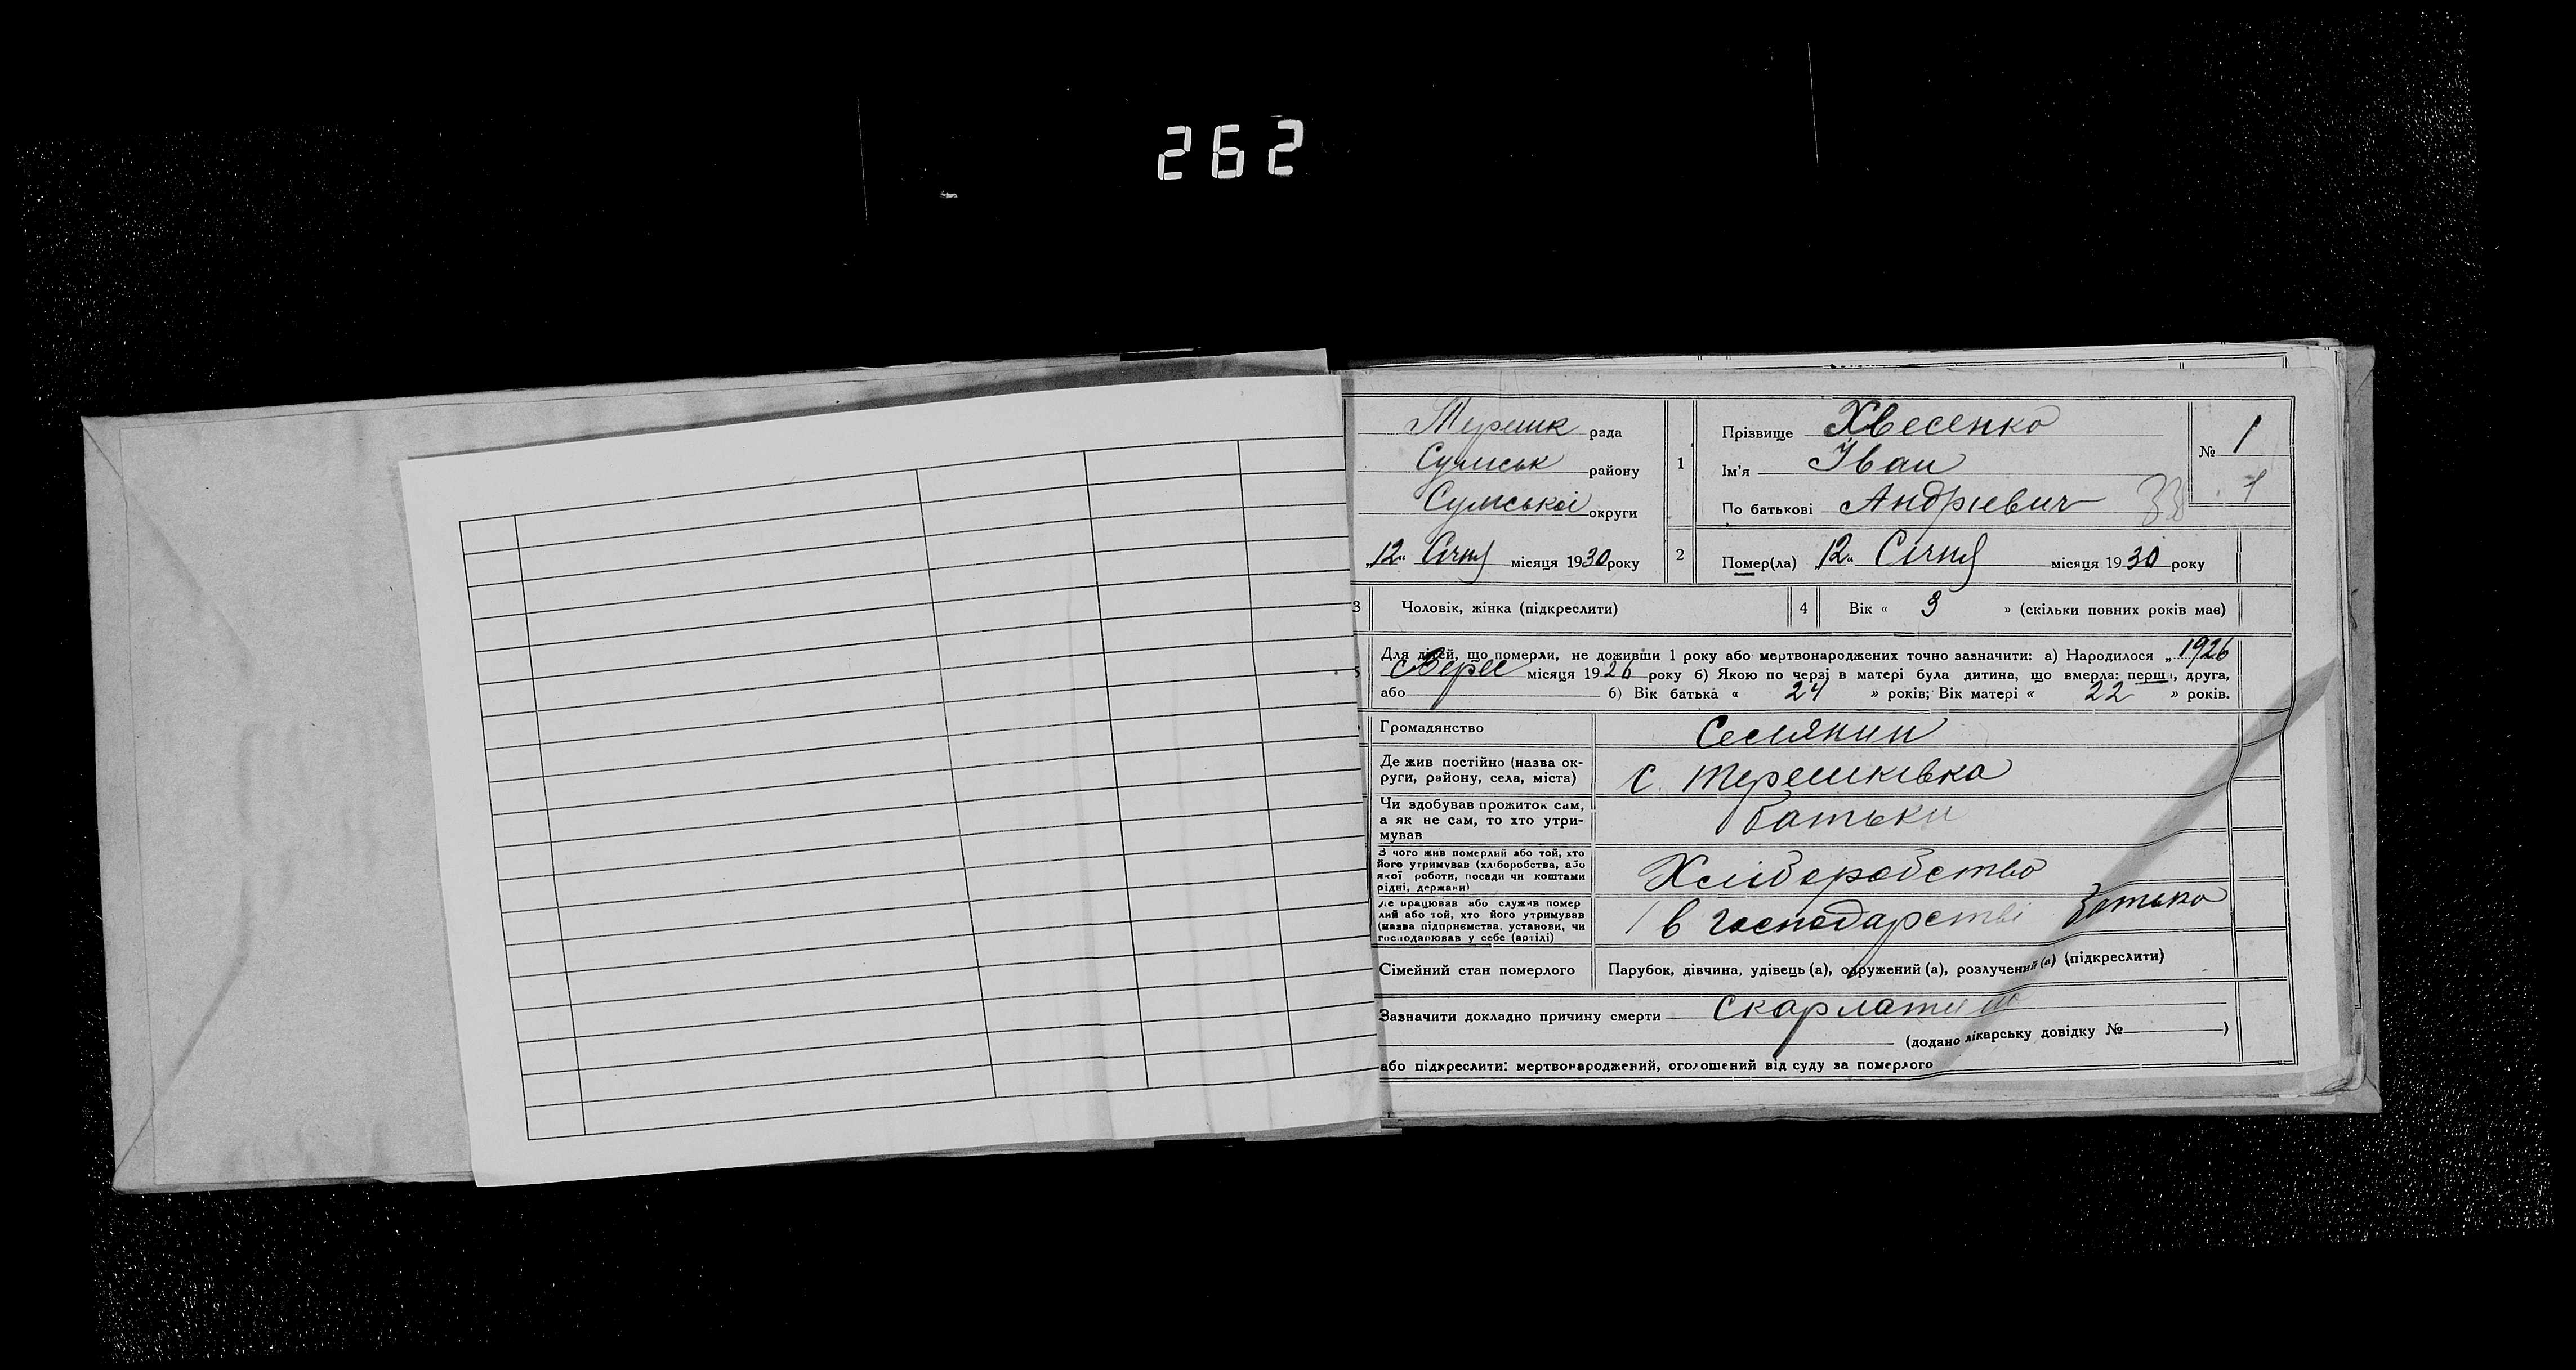 262
Терешк рада
Сумськ району
Сумської округи
„12“ Січня місяця 1930 року
1
Прізвище Хвесенко
Ім'я Іван
По батькові Андрієвич
33
№ 1
1
2
Помер(ла) „12“ Січня місяця 1930 року
3
Чоловік, жінка (підкреслити)
4
Вік « 3 » (скільки повних років має)
5
Для дітей, що померли, не доживши 1 року або мертвонароджених точно зазначити: а) Народилося „1926
Верес місяця 1926 року б) Якою по черзі в матері була дитина, що вмерла: перша, друга,
або б) Вік батька « 24 » років; Вік матері « 22 » років.
Громадянство
Селянин
Де жив постійно (назва ок-
руги, району, села, міста)
с. Терешківка
Чи здобував прожиток сам,
а як не сам, то хто утри-
мував
батьки
З чого жив померлий або той, хто
його утримував (хліборобства, або
якої роботи, посади чи коштами
рідні, держави)
Хліборобство
Де працював або служив помер
лий або той, хто його утримував
(назва підприємства, установи, чи
господарював у себе (артілі)
в господарстві батька
Сімейний стан померлого
Парубок, дівчина, удівець (а), одружений (а), розлучений (а) (підкреслити)
Зазначити докладно причину смерти скарлатина
(додано лікарську довідку № )
або підкреслити: мертвонароджений, оголошений від суду за померлого